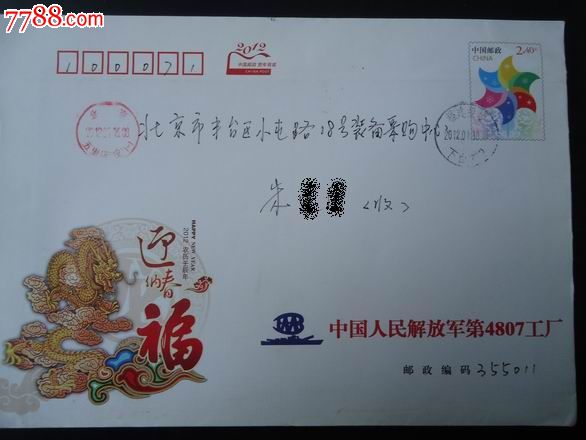 7788.com
100071
2012
中国邮政 贺年有奖
CHINA POST
中国邮政
CHINA
2.40元
北京市丰台区小屯路18号装备采购中心
2012.01
朱
(收)
HAPPY NEW YEAR
2012 农历壬辰年
迎
纳春
福
中国人民解放军第4807工厂
邮政编码 355011